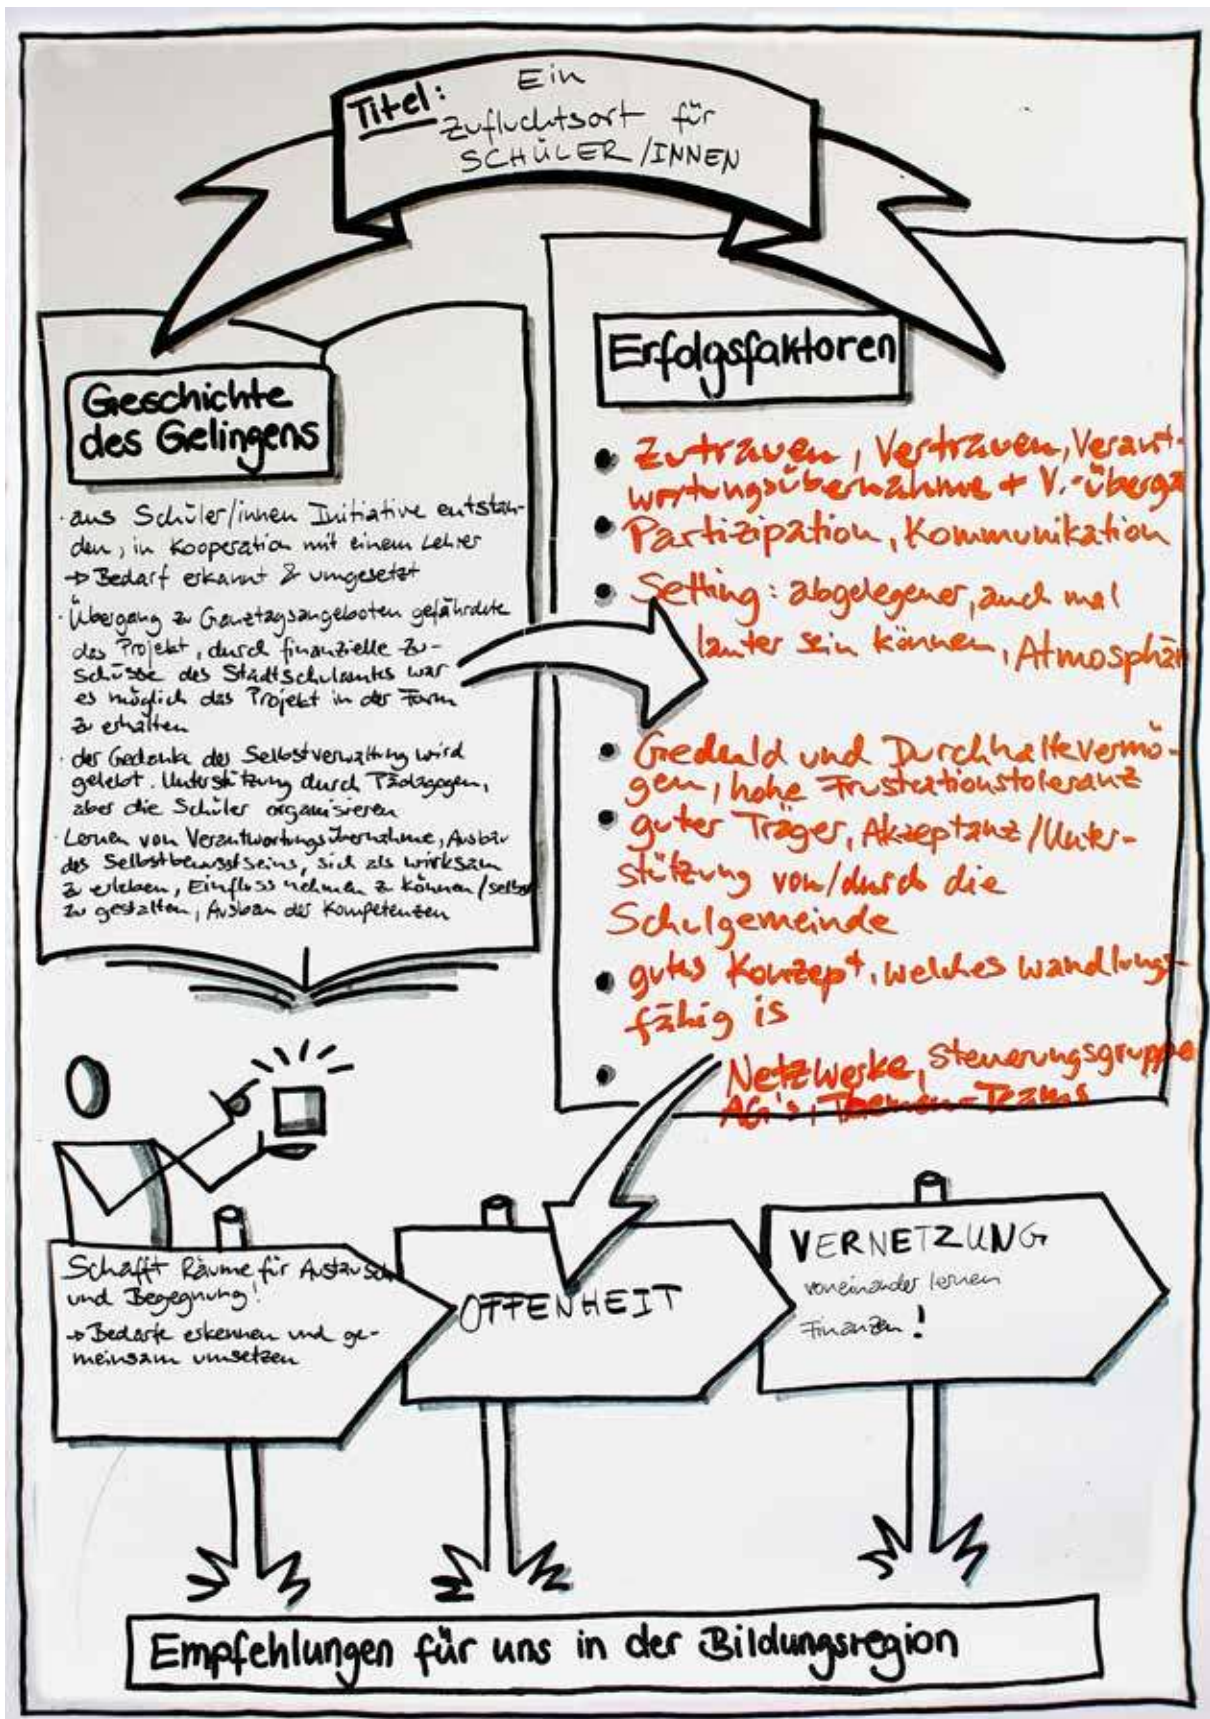 Titel: Ein
Zufluchtsort für
SCHÜLER/INNEN
Geschichte
des Gelingens
· aus Schüler/innen Initiative entstan-
den, in Kooperation mit einem Lehrer
→ Bedarf erkannt & umgesetzt
· Übergang zu Ganztagsangeboten gefährdete
das Projekt, durch finanzielle Zu-
schüsse des Stadtschulamtes war
es möglich das Projekt in der Form
zu erhalten
· der Gedanke der Selbstverwaltung wird
gelebt. Unterstützung durch Pädagogen,
aber die Schüler organisieren
· Lernen von Verantwortungsübernahme, Ausbau
des Selbstbewusstseins, sich als wirksam
zu erleben, Einfluss nehmen zu können/selbst
zu gestalten, Ausbau der Kompetenzen
Erfolgsfaktoren
• Zutrauen, Vertrauen, Verant-
wortungsübernahme + V.-überga
• Partizipation, Kommunikation
• Setting: abgelegener, auch mal
lauter sein können, Atmosphär
• Geduld und Durchhaltevermö-
gen, hohe Frustrationstoleranz
• guter Träger, Akzeptanz/Unter-
stützung von/durch die
Schulgemeinde
• gutes Konzept, welches wandlungs-
fähig is
• Netzwerke, Steuerungsgruppe
AG's, Themen-Teams
Schafft Räume für Austausch
und Begegnung!
→ Bedarfe erkennen und ge-
meinsam umsetzen
OFFENHEIT
VERNETZUNG
voneinander lernen
Finanzen!
Empfehlungen für uns in der Bildungsregion